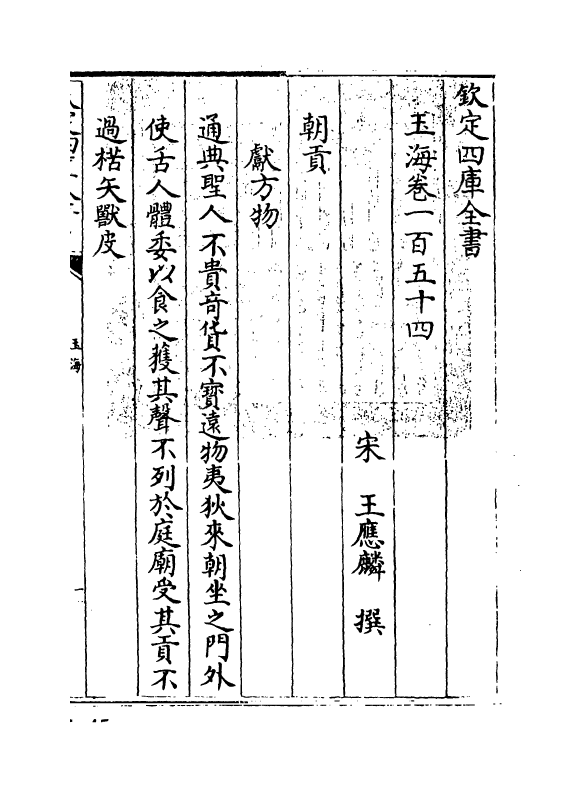 欽定四庫全書
玉海卷一百五十四
宋 王應麟 撰
朝貢
獻方物
通典聖人不貴奇貨不寳遠物夷狄來朝坐之門外
使舌人體委以食之獲其聲不列於庭廟受其貢不
過楛矢獸皮
玉海
一